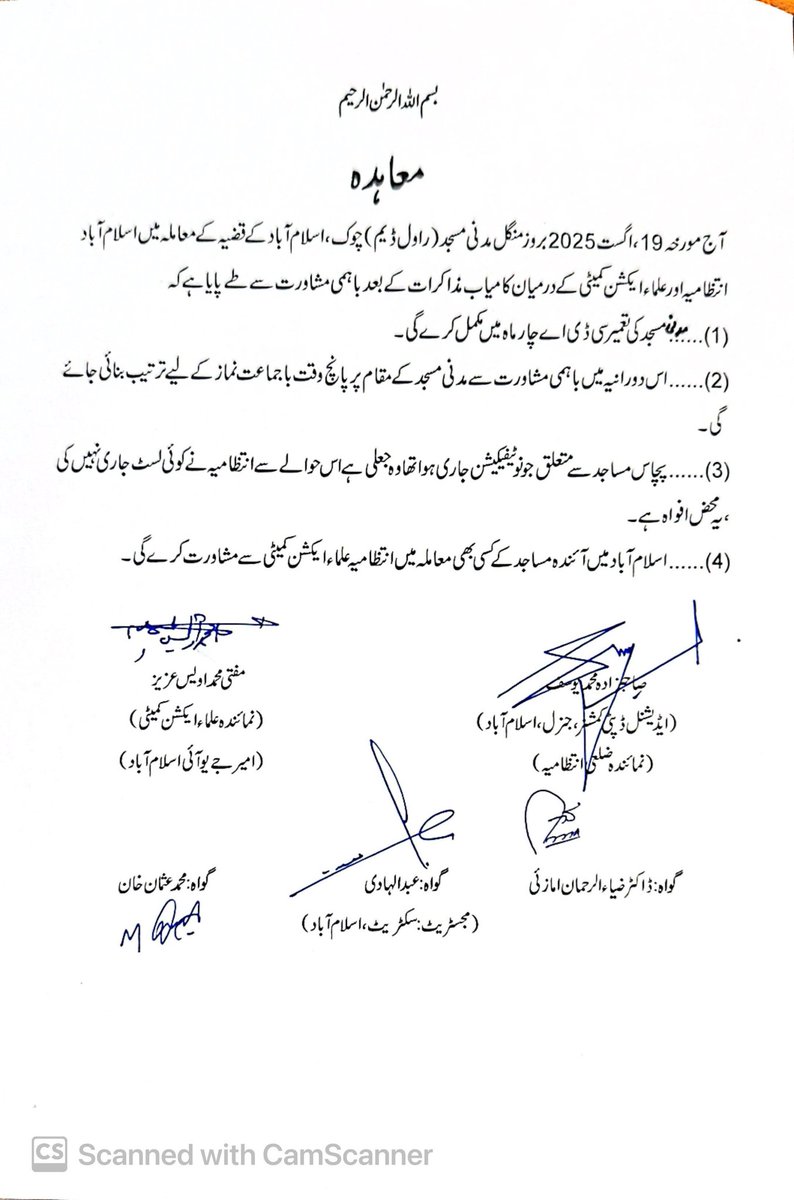 بسم اللہ الرحمٰن الرحیم
معاہدہ
آج مورخہ 19،اگست 2025 بروز منگل مدنی مسجد (راول ڈیم) چوک، اسلام آباد کے قضیہ کے معاملہ میں اسلام آباد
انتظامیہ اور علماء ایکشن کمیٹی کے درمیان کامیاب مذاکرات کے بعد باہمی مشاورت سے طے پایا ہے کہ
(1)...... مدنی مسجد کی تعمیر سی ڈی اے چار ماہ میں مکمل کرے گی۔
(2)...... اس دورانیہ میں باہمی مشاورت سے مدنی مسجد کے مقام پر پانچ وقت با جماعت نماز کے لیے ترتیب بنائی جائے
گی۔
(3)...... پچاس مساجد سے متعلق جو نوٹیفیکیشن جاری ہوا تھا وہ جعلی ہے اس حوالے سے انتظامیہ نے کوئی لسٹ جاری نہیں کی
،یہ محض افواہ ہے۔
(4)...... اسلام آباد میں آئندہ مساجد کے کسی بھی معاملہ میں انتظامیہ علماء ایکشن کمیٹی سے مشاورت کرے گی۔
صاحبزادہ محمد یوسف
مفتی محمد اویس عزیز
(ایڈیشنل ڈپٹی کمشنر، جنرل، اسلام آباد)
(نمائندہ علماء ایکشن کمیٹی)
(نمائندہ ضلعی انتظامیہ)
(امیر جے یو آئی اسلام آباد)
گواہ: ڈاکٹر ضیاء الرحمان امازئی
گواہ: عبدالہادی
گواہ: محمد عثمان خان
(مجسٹریٹ: سکٹریٹ، اسلام آباد)
CS Scanned with CamScanner